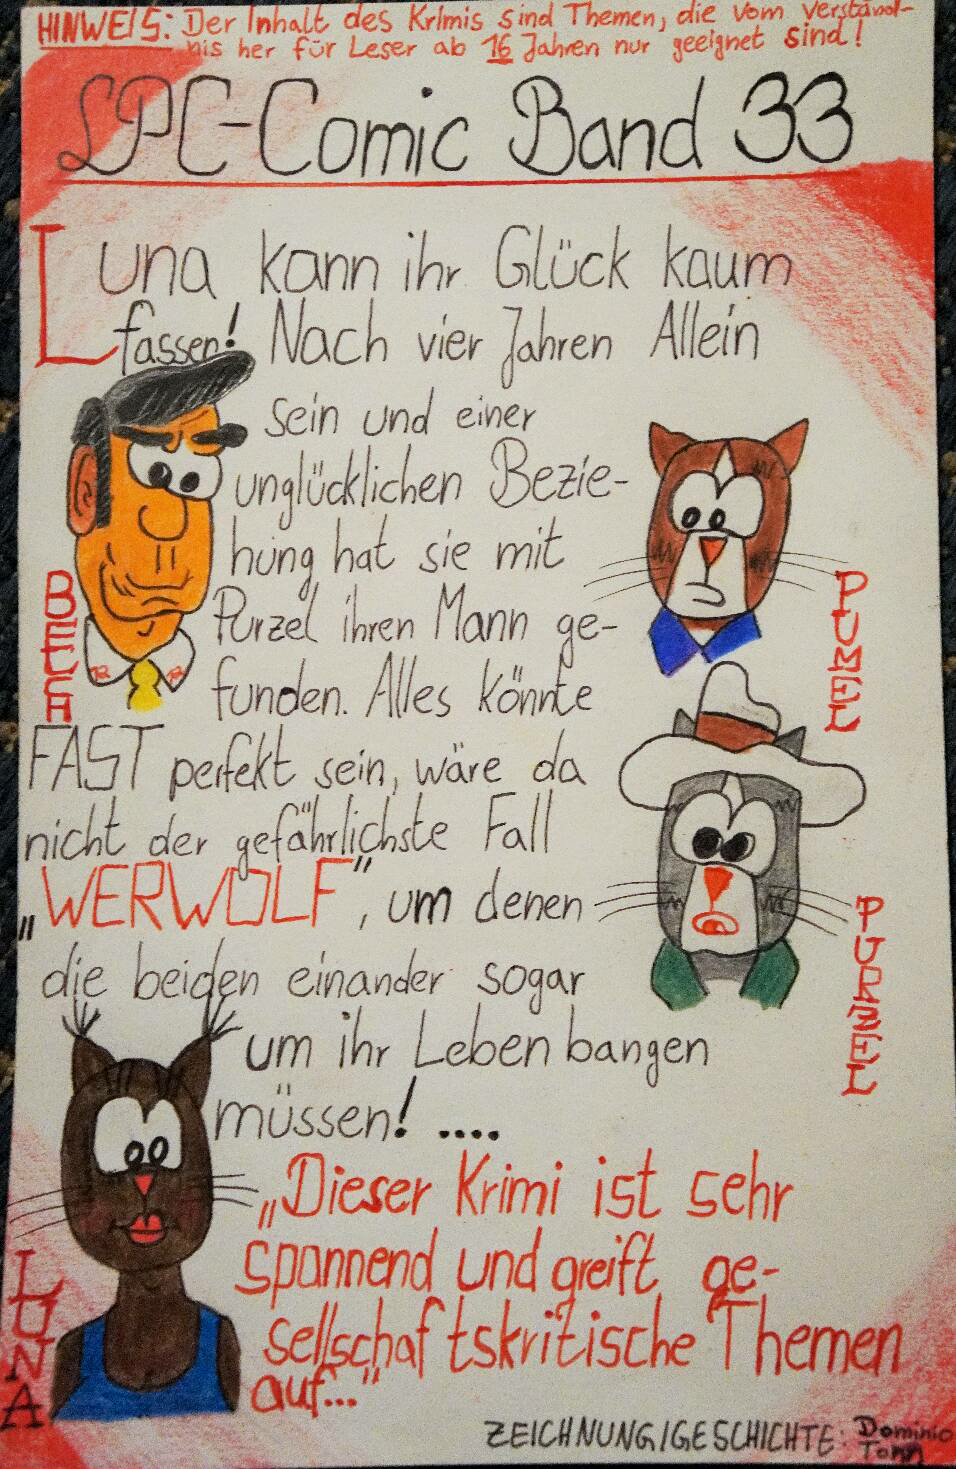 HINWEIS: Der Inhalt des Krimis sind Themen, die vom Verständ-
nis her für Leser ab 16 Jahren nur geeignet sind!
LPC-Comic Band 33
Luna kann ihr Glück kaum
fassen! Nach vier Jahren Allein
sein und einer
unglücklichen Bezie-
hung hat sie mit
Purzel ihren Mann ge-
funden. Alles könnte
FAST perfekt sein, wäre da
nicht der gefährlichste Fall
„WERWOLF", um denen
die beiden einander sogar
um ihr Leben bangen
müssen! ....
„Dieser Krimi ist sehr
spannend und greift ge-
sellschaftskritische Themen
auf..."
PIMEL
PURZEL
LUNA
ZEICHNUNG/GESCHICHTE: Dominic
Tonn